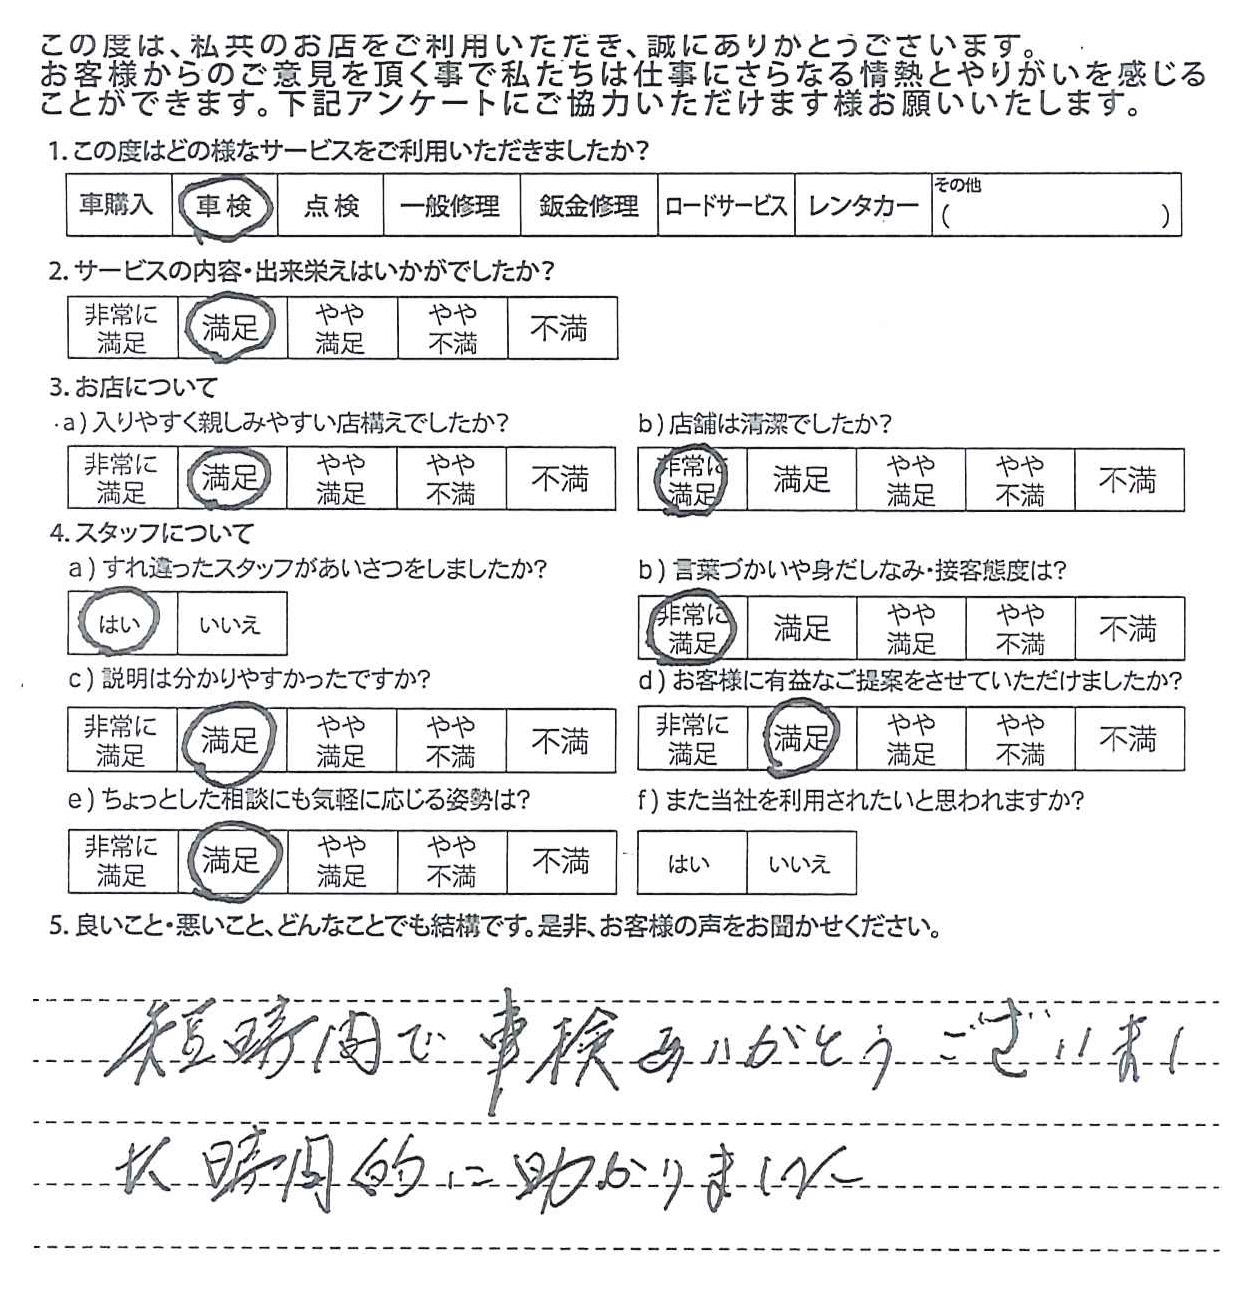 この度は、私共のお店をご利用いただき、誠にありがとうございます。
お客様からのご意見を頂く事で私たちは仕事にさらなる情熱とやりがいを感じる
ことができます。下記アンケートにご協力いただけます様お願いいたします。
1. この度はどの様なサービスをご利用いただきましたか?
車購入 車検 点検 一般修理 鈑金修理 ロードサービス レンタカー その他( )
2. サービスの内容・出来栄えはいかがでしたか?
非常に満足 満足 やや満足 やや不満 不満
3. お店について
a) 入りやすく親しみやすい店構えでしたか? b) 店舗は清潔でしたか?
非常に満足 満足 やや満足 やや不満 不満 非常に満足 満足 やや満足 やや不満 不満
4. スタッフについて
a) すれ違ったスタッフがあいさつをしましたか? b) 言葉づかいや身だしなみ・接客態度は?
はい いいえ 非常に満足 満足 やや満足 やや不満 不満
c) 説明は分かりやすかったですか? d) お客様に有益なご提案をさせていただけましたか?
非常に満足 満足 やや満足 やや不満 不満 非常に満足 満足 やや満足 やや不満 不満
e) ちょっとした相談にも気軽に応じる姿勢は? f) また当社を利用されたいと思われますか?
非常に満足 満足 やや満足 やや不満 不満 はい いいえ
5. 良いこと・悪いこと、どんなことでも結構です。是非、お客様の声をお聞かせください。
短時間で車検ありがとうございまし
た 時間的に助かりました